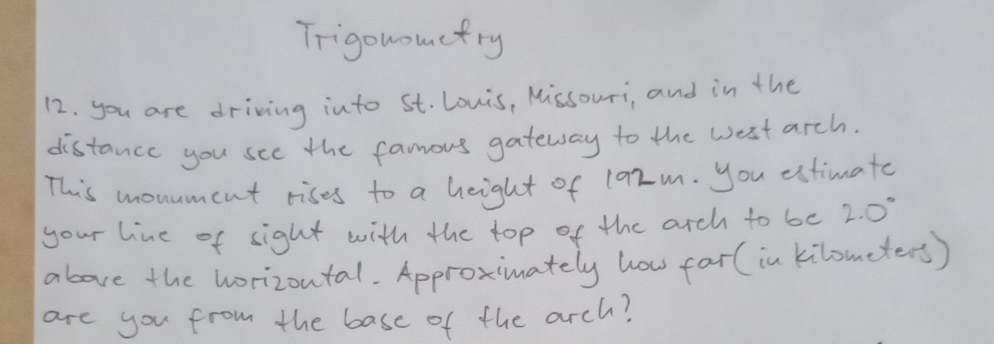 Trigonometry
12. you are driving into St. Louis, Missouri, and in the
distance you see the famous gateway to the west arch.
This monument rises to a height of 192m. you estimate
your line of sight with the top of the arch to be 2.0°
above the horizontal. Approximately how far (in kilometers)
are you from the base of the arch?